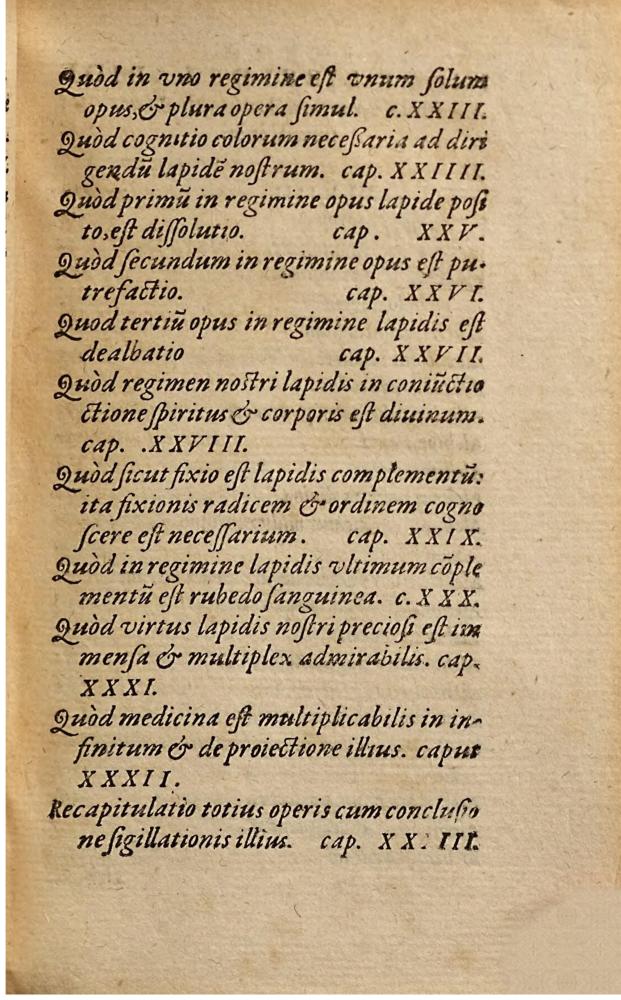 Quòd in vno regimine est vnum solum
opus, & plura opera simul. c. XXIII.
Quòd cognitio colorum necessaria ad diri
gendū lapidē nostrum. cap. XXIIII.
Quòd primū in regimine opus lapide posi
to, est dissolutio. cap. XXV.
Quòd secundum in regimine opus est pu-
trefactio. cap. XXVI.
Quod tertiū opus in regimine lapidis est
dealbatio cap. XXVII.
Quòd regimen nostri lapidis in coniūctio
ctione spiritus & corporis est diuinum.
cap. .XXVIII.
Quòd sicut fixio est lapidis complementū:
ita fixionis radicem & ordinem cogno
scere est necessarium. cap. XXIX.
Quòd in regimine lapidis vltimum cōple
mentū est rubedo sanguinea. c. XXX.
Quòd virtus lapidis nostri preciosi est im
mensa & multiplex admirabilis. cap.
XXXI.
Quòd medicina est multiplicabilis in in-
finitum & de proiectione illius. caput
XXXII.
Recapitulatio totius operis cum conclusio
ne sigillationis illius. cap.